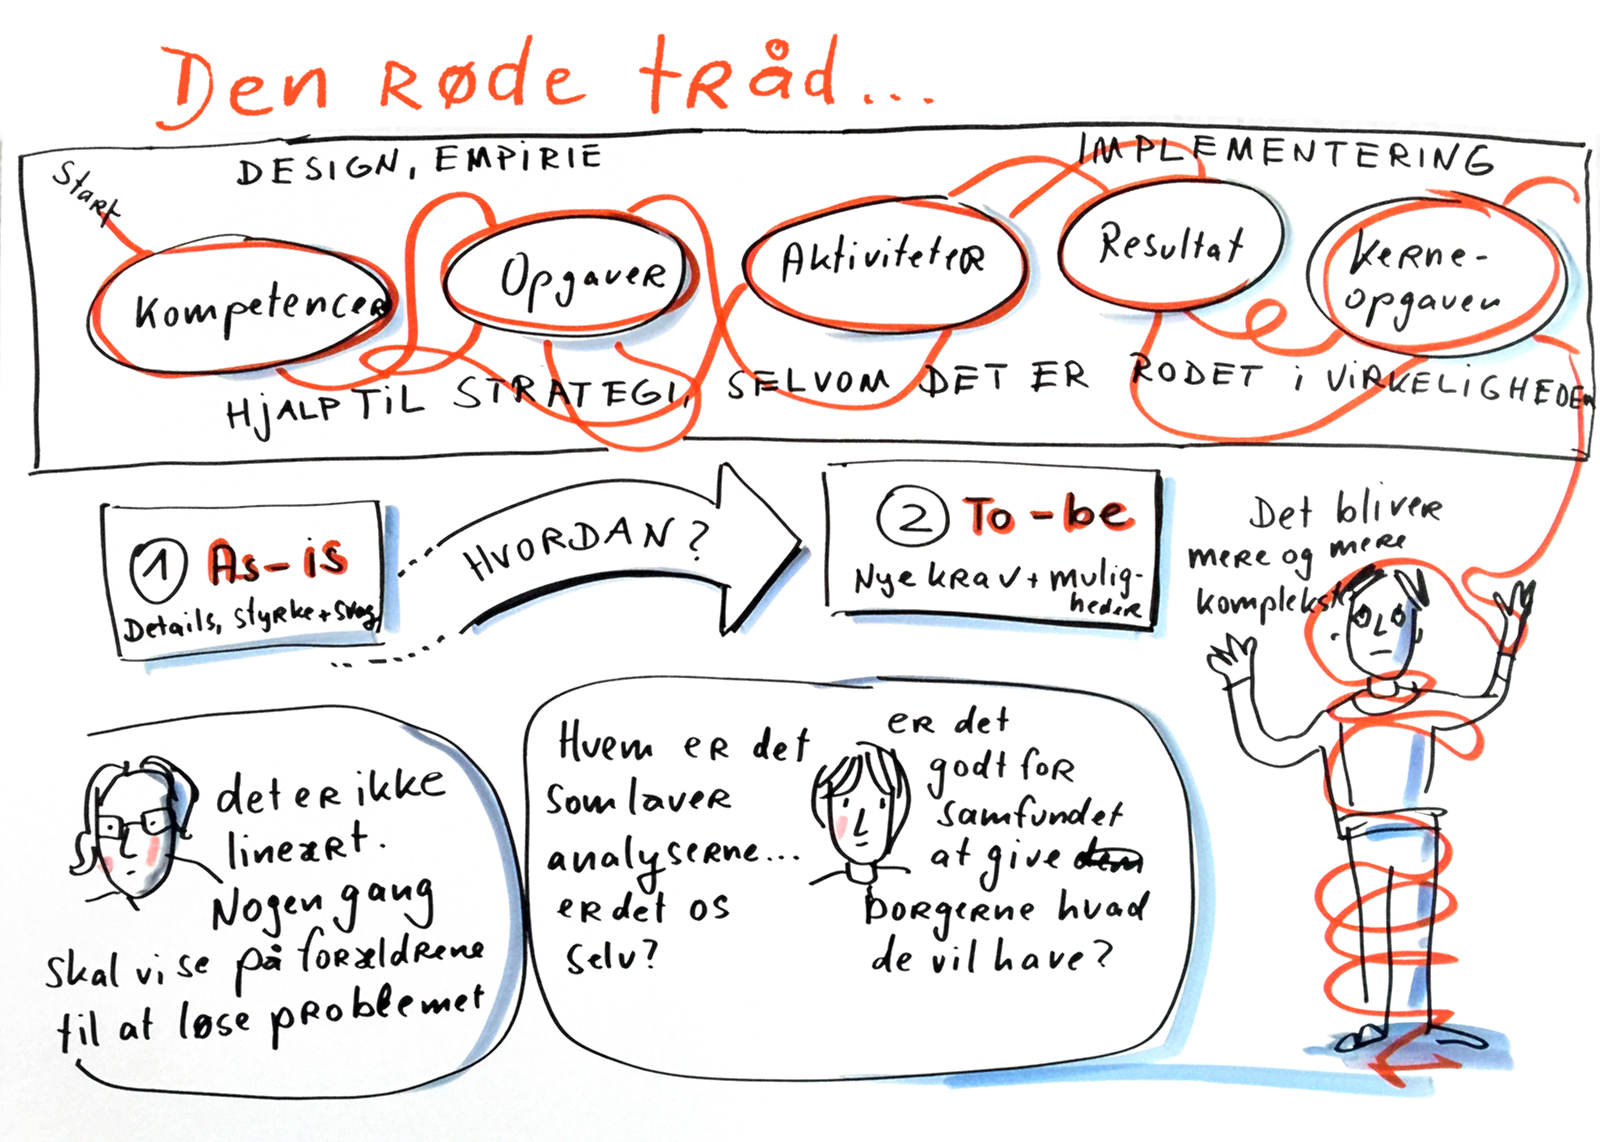 Den Røde tRåd...
DESIGN, EMPIRIE
IMPLEMENTERING
Start
Kompetencer
Opgaver
Aktiviteter
Resultat
Kerne-
opgaven
HJALP TIL STRATEGI, SELVOM DET ER RODET i VIRKELIGHEDEN
1 As-is
Details, styrke + svag
HVORDAN?
2 To-be
Nye krav + mulig-
heder
Det bliver
mere og mere
kompleks
det er ikke
lineært.
Nogen gang
skal vi se på forældrene
til at løse problemet
Hvem er det
som laver
analyserne...
er det os
selv?
er det
godt for
samfundet
at give dem
borgerne hvad
de vil have?